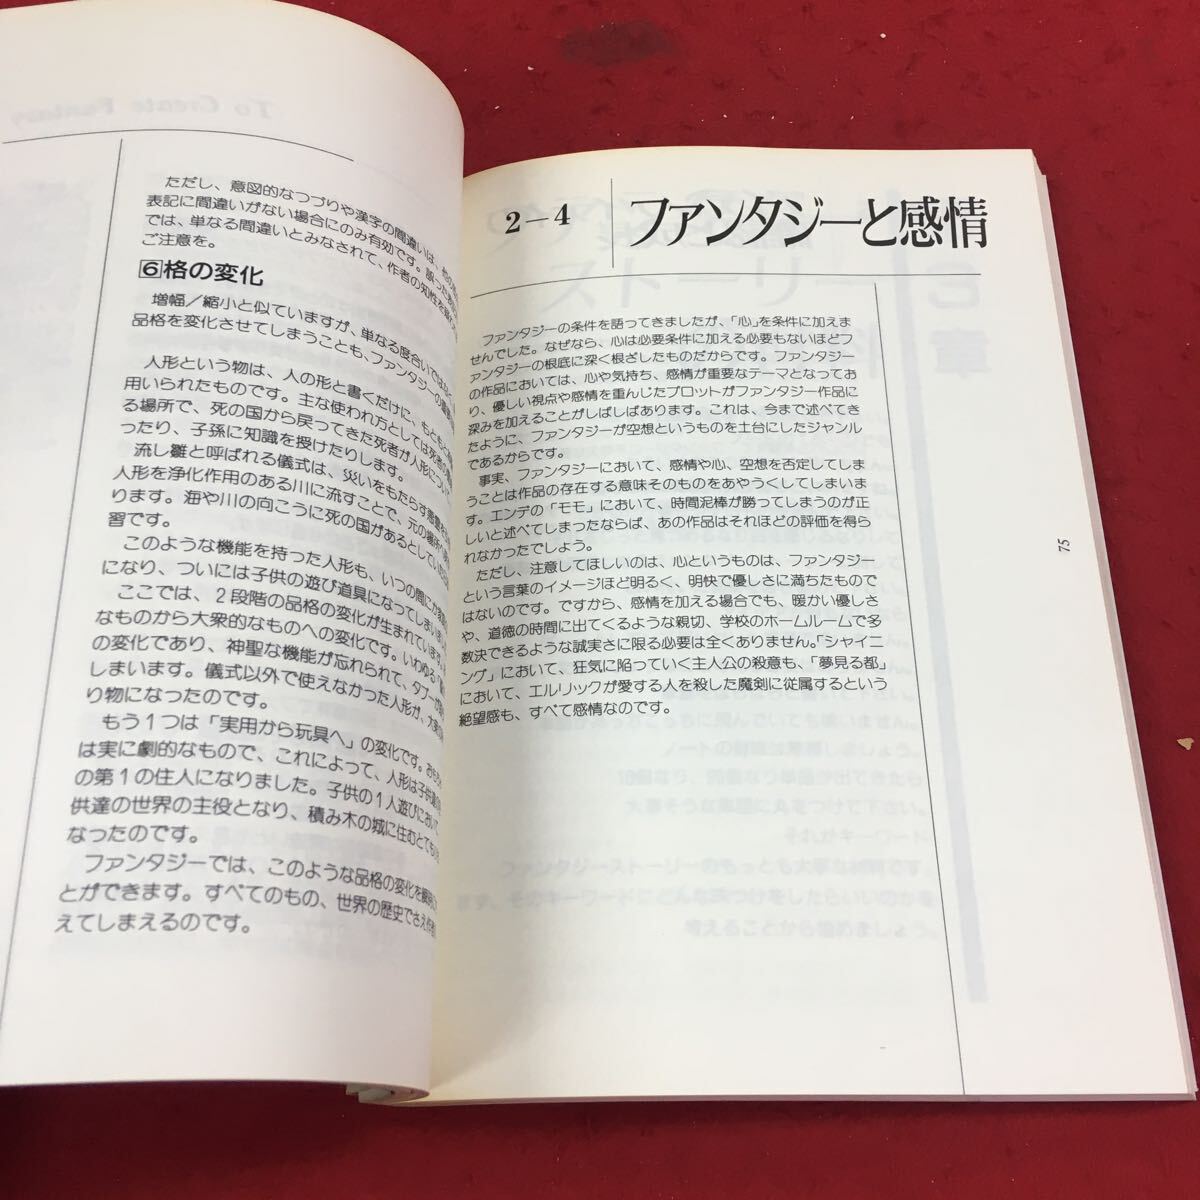 To Create Fantasy
ただし、意図的なつづりや漢字の間違いは、
表記に間違いがない場合にのみ有効です。
では、単なる間違いとみなされて、作者の知性を
ご注意を。
6格の変化
増幅/縮小と似ていますが、単なる度合いではなく
品格を変化させてしまうことも、ファンタジーの
人形という物は、人の形と書くだけに、もともと
用いられたものです。主な使われ方としては
る場所で、死の国から戻ってきた死者が人形につい
ったり、子孫に知識を授けたりします。
流し雛と呼ばれる儀式は、災いをもたらす
人形を浄化作用のある川に流すことで、元の場所
ります。海や川の向こうに死の国があるとしてい
習です。
このような機能を持った人形も、いつの間にか
になり、ついには子供の遊び道具になってしまい
ここでは、2段階の品格の変化が生まれています。
なものから大衆的なものへの変化です。いわゆる
の変化であり、神聖な機能が忘れられて、タブーが
しまいます。儀式以外で使えなかった人形が、
り物になったのです。
もう1つは「実用から玩具へ」の変化です。
は実に劇的なもので、これによって、人形は子供
の第1の住人になりました。子供の1人遊びにおいて
供達の世界の主役となり、積み木の城に住むとても
なったのです。
ファンタジーでは、このような品格の変化を
とができます。すべてのもの、世界の歴史でさえ
えてしまえるのです。
2-4 ファンタジーと感情
ファンタジーの条件を語ってきましたが、「心」を条件に加えま
せんでした。なぜなら、心は必要条件に加える必要もないほどフ
ァンタジーの根底に深く根ざしたものだからです。ファンタジー
の作品においては、心や気持ち、感情が重要なテーマとなってお
り、優しい視点や感情を重んじたプロットがファンタジー作品に
深みを加えることがしばしばあります。これは、今まで述べてき
たように、ファンタジーが空想というものを土台にしたジャンル
であるからです。
事実、ファンタジーにおいて、感情や心、空想を否定してしま
うことは作品の存在する意味そのものをあやうくしてしまいま
す。エンデの「モモ」において、時間泥棒が勝ってしまうのが正
しいと述べてしまったならば、あの作品はそれほどの評価を得ら
れなかったでしょう。
ただし、注意してほしいのは、心というものは、ファンタジー
という言葉のイメージほど明るく、明快で優しさに満ちたもので
はないのです。ですから、感情を加える場合でも、暖かい優しさ
や、道徳の時間に出てくるような親切、学校のホームルームで多
数決できるような誠実さに限る必要は全くありません。「シャイニ
ング」において、狂気に陥っていく主人公の殺意も、「夢見る都」
において、エルリックが愛する人を殺した魔剣に従属するという
絶望感も、すべて感情なのです。
75